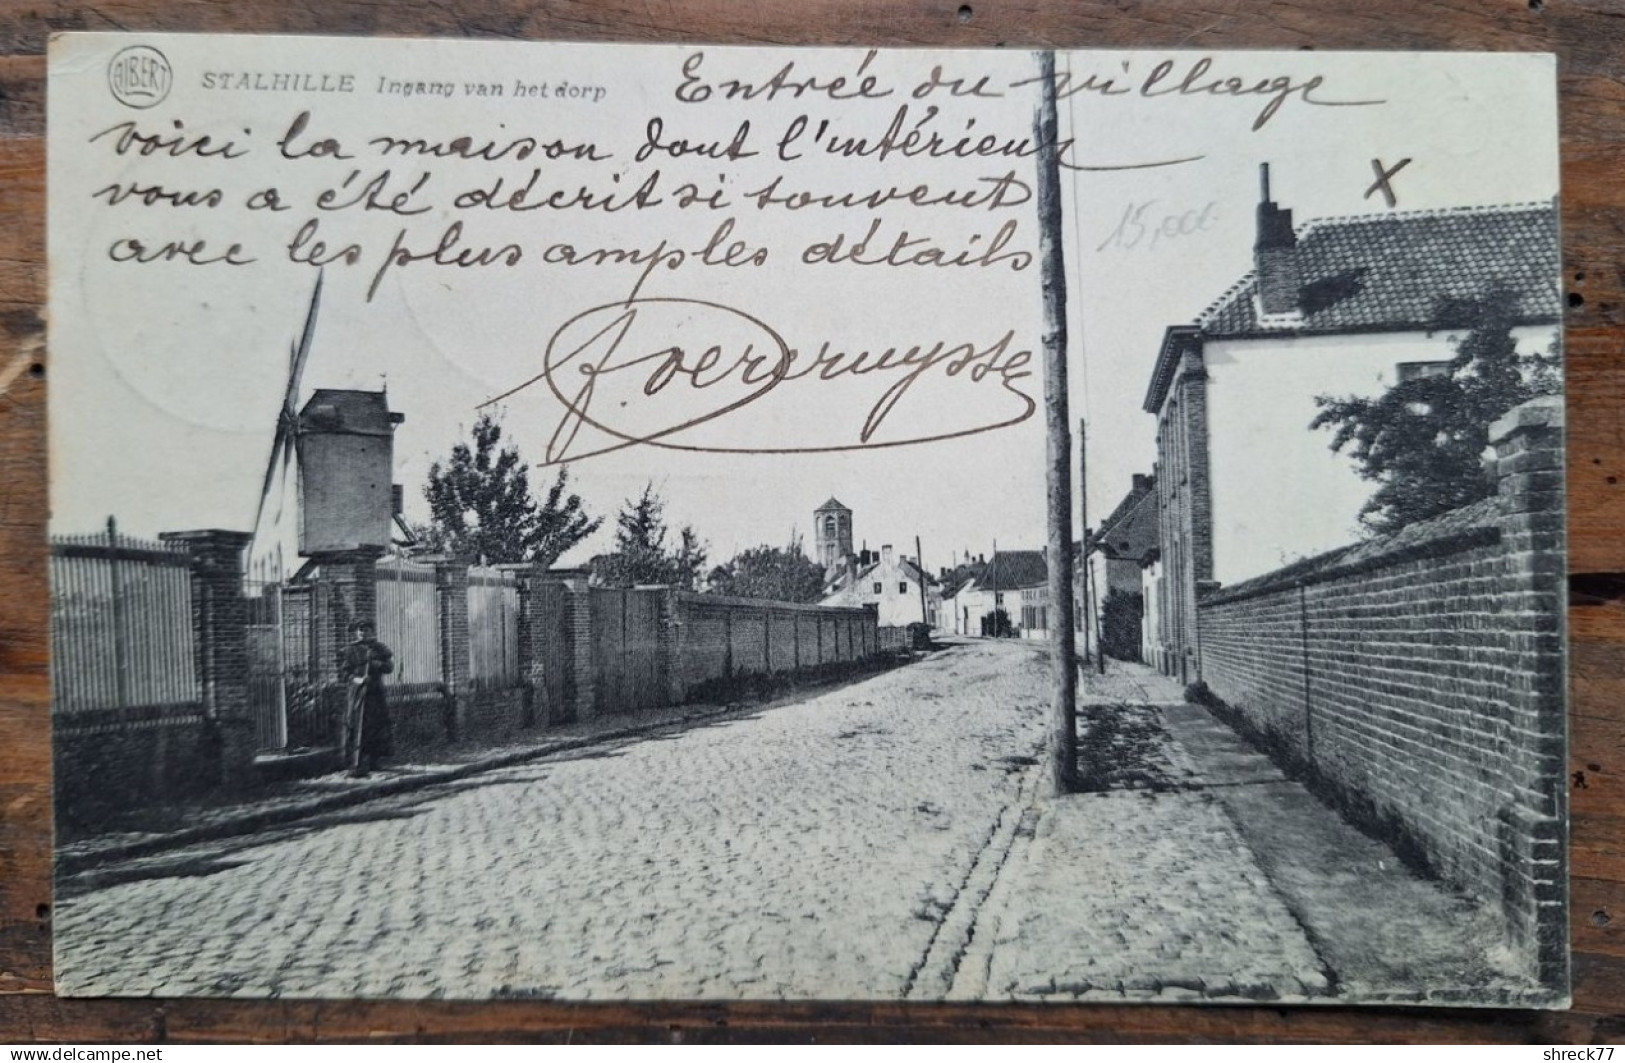 ALBERT
STALHILLE Ingang van het dorp
Entrée du village
voici la maison dont l'intérieur
vous a été décrit si souvent
avec les plus amples détails
J. Vercruysse
X
15,00
delcampe.net
shreck77